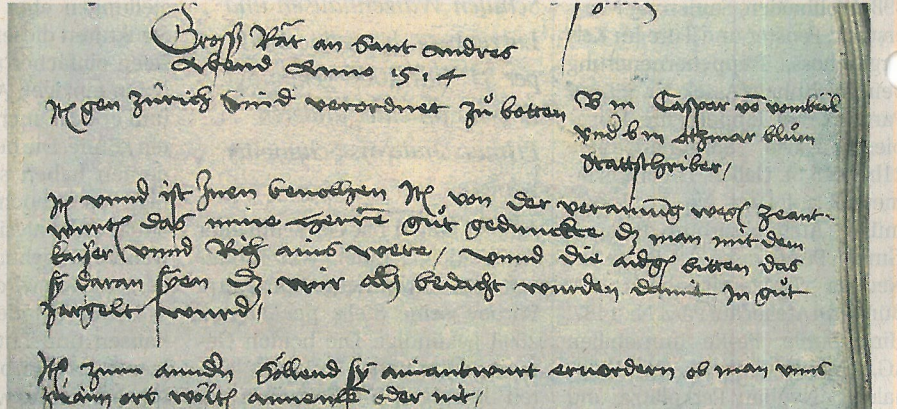 Gross Rǎt an Sant Andres
Abend Anno 1514
Itē gen zürich sind verordnet zů botten
B m Caspar vō vonbül
vnd b m Atzmar blům
Stattschriber,
Itē vnnd ist Inen beuolhen Itē von der veraing wegē zeant-
wurtē das mine Herrē gůt geduncke dz man mit dem
kaiser vnnd Rich ains were, vnnd die aidgē bitten das
sy daran syen dz wir och bedacht wurden damit In gůt
gelt wurd,
Itē zum anndn Söllend sy ain antwurt eruordern ob man vnns
zů ain ort wöltē annemē oder nit,